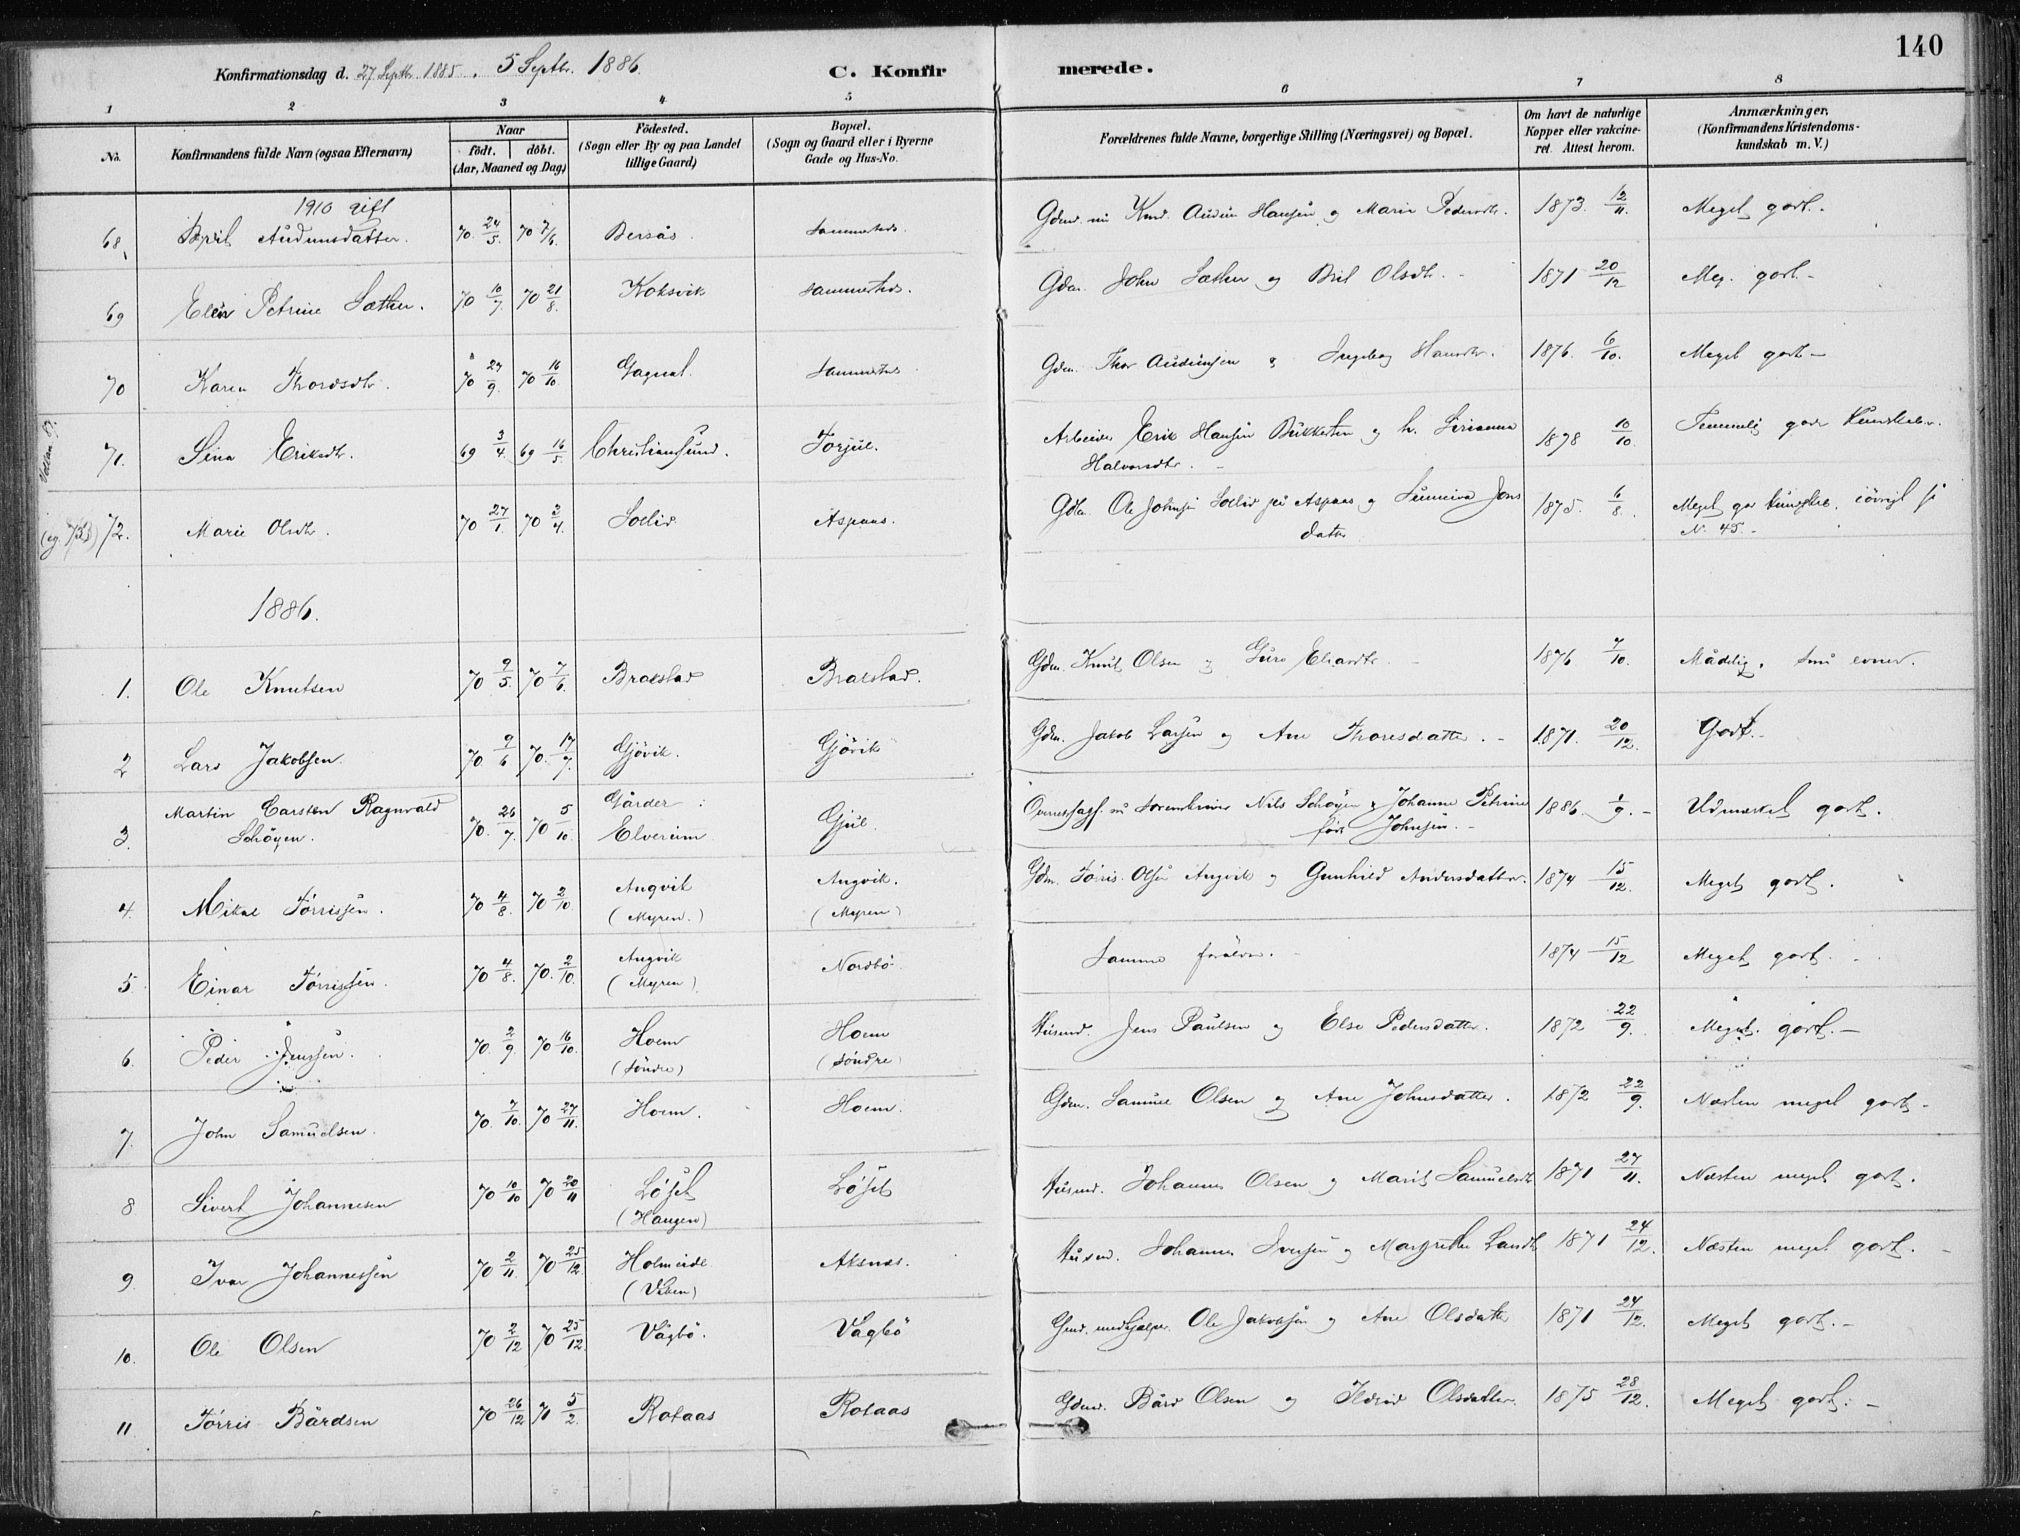 140
Konfirmationsdag d. 27 Septbr. 1885. 5 Septbr. 1886.
C. Konfirmerede.
1 2 3 4 5 6 7 8
No.
Konfirmandens fulde Navn (ogsaa Efternavn)
Naar
födt. döbt.
(Aar, Maaned og Dag)
Födested.
(Sogn eller By og paa Landet
tillige Gaard)
Bopæl.
(Sogn og Gaard eller i Byerne
Gade og Hus-No.
Forældrenes fulde Navne, borgerlige Stilling (Næringsvei) og Bopæl.
Om havt de naturlige
Kopper eller vakcine-
ret. Attest herom.
Anmærkninger.
(Konfirmandens Kristendoms-
kundskab m. V.)
1910 gift
68. Brit Audunsdatter. 70 24/5. 70 7/6. Bersås. Sammesteds. Audun Hansen og Marie Pedersdtr. 1873. 12/11. Meget godt.
69 Elen Petrine Sæther. 70 10/7. 70 21/8. Koksvik Sammesteds. Gdm. John Sæther og Brit Olsdtr. 1871 20/12 Meg. godt.
70 Karen Thoresdtr. 70 27/9. 70 16/10. Gagnat. Sammesteds Gdm. Thor Audunsen og Ingeborg Hansdtr. 1876. 6/10. Meget godt
71. Sina Eriksdtr. 69 3/4. 69 16/5. Christiansund. Torjul. Arbeider Erik Hansen og h.
Halvorsdtr. 1878 10/10. Temmelig god Kundskab.
72. Marie Olsdtr. 70 27/1. 70 3/4. Solli Aspaas. Gdm. Ole Johnsen på Aspaas og Sunniva Jons
datter 1875. 6/8. Meget god
N. 45.
1886.
1. Ole Knutsen 70 9/5. 70 7/6. Brakstad Brakstad. Gdm. Knut Olsen og Guro 1876 7/10. Mådelig. Små evner.
2 Lars Jakobsen. 70 9/6 70. 17/7. Gjövik. Gjövik Gdm. Jakob Larsen og Ane Thoresdatter. 1871. 20/12. Godt.
3. Martin Carsten Ragnvald
Schöyen. 70. 26/7. 70 5/10. Gårder
Elverum Gjul. Nils Schöyen & Johanne Petrine
född Johnsen. 1886. 1/9. Udmærket godt.
4. Mikal Törrissen. 70 4/8. 70 2/10. Angvik
(Myren.) Angvik.
(Myren) Gdm. Törris Olsen Angvik og Gunhild Andersdatter. 1874 15/12. Meget godt.
5. Einar Törrissen. 70 4/8. 70. 2/10. Angvik
(Myren) Nordbö Samme forældre. 1874 15/12 Meget godt.
6. Peder Jenssen. 70. 2/9. 70 16/10. Hoem
(Söndre) Hoem
(Söndre) Husmd. Jens Paulsen og Else Pedersdatter. 1872 22/9. Meget godt.
7. John Samuelsen. 70. 7/10. 70 27/11. Hoem. Hoem. Gdm. Samuel Olsen og Ane Johnsdatter. 1872 22/9. Næsten meget godt
8 Sivert Johannesen 70 10/10 70 20/11 Löset
(Haugen) Löset Husmd. Johannes Olsen og Marit Samuelsdtr 1871 27/11. Næsten meget godt.
9 Ivar Johannessen 70 2/11. 70 25/12. Holmeide
Aksnæs. Husmd. Johannes Iversen og Margrethe 1871 24/12. Næsten meget godt.
10. Ole Olsen 70 2/12 70 25/12. Vågbö. Vågbö Ole Jakobsen og Ane Olsdatter 1871 24/12. Meget godt.
11 Törris Bårdsen 70 26/12 71 5/2. Rotaas Rotaas Gdmd. Bård Olsen og Ildrid Olsdatter. 1875 28/12. Meget godt.